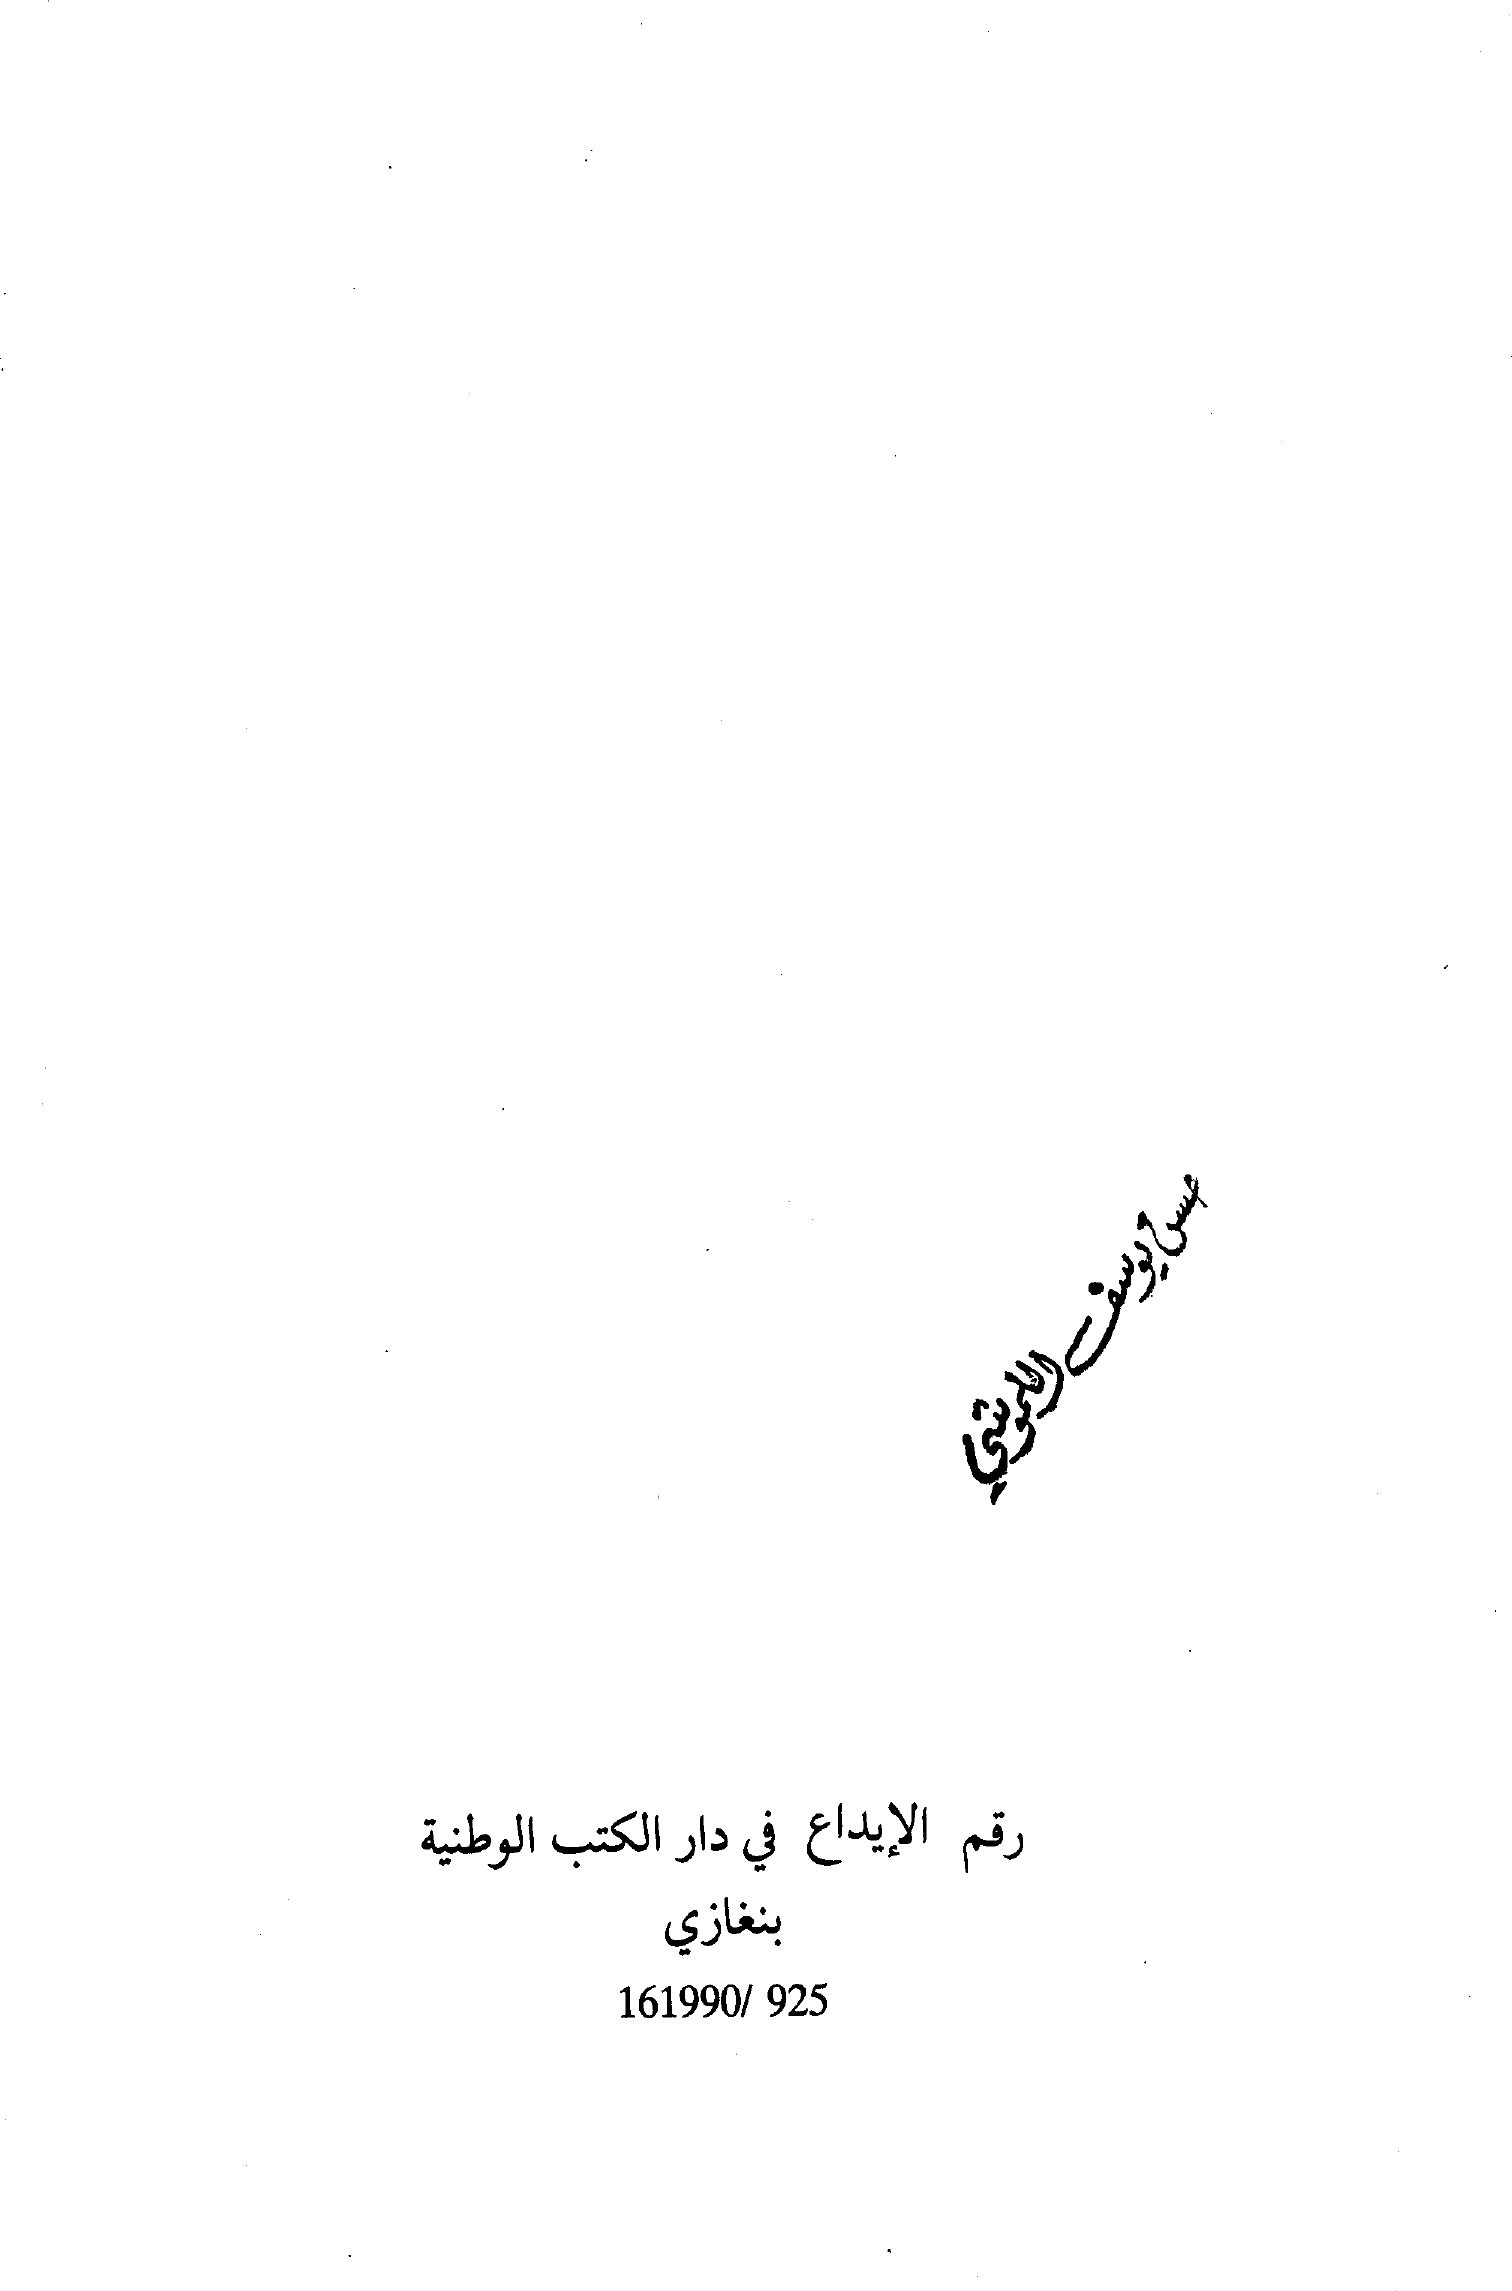 يوسف
رقم الإيداع في دار الكتب الوطنية
بنغازي
161990/ 925